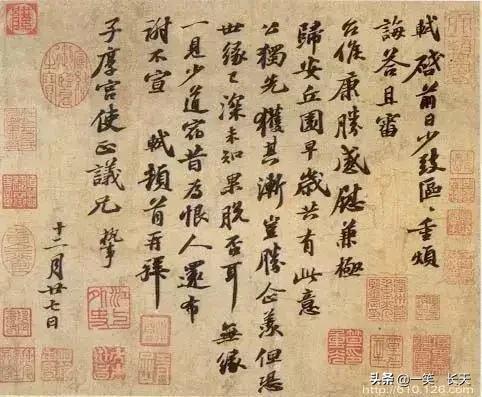 軾啓前日少致區區重煩
誨荅且審
台候康勝感慰兼極
歸安丘園早歲共有此意
公獨先獲其漸豈勝企羨但恐
世緣已深未知果脫否耳無緣
一見少道宿昔爲恨人還布
謝不宣 軾頓首再拜
子厚宮使正議兄 執事
十二月廿七日
头条 @一笑、长天
http://610.126.com